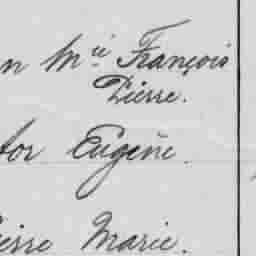 n Mie François
Pierre.
tor Eugène.
ierre Marie.